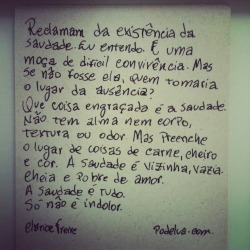 Reclamam da existência da
saudade. Eu entendo. É uma
moça de difícil convivência. Mas
se não fosse ela, quem tomaria
o lugar da ausência?
Que coisa engraçada é a saudade.
Não tem alma nem corpo,
textura ou odor. Mas preenche
o lugar de coisas de carne, cheiro
e cor. A saudade é vizinha, vaza
cheia e pobre de amor.
A saudade é tudo.
Só não é indolor.
Clarice Freire
Podelua.com.